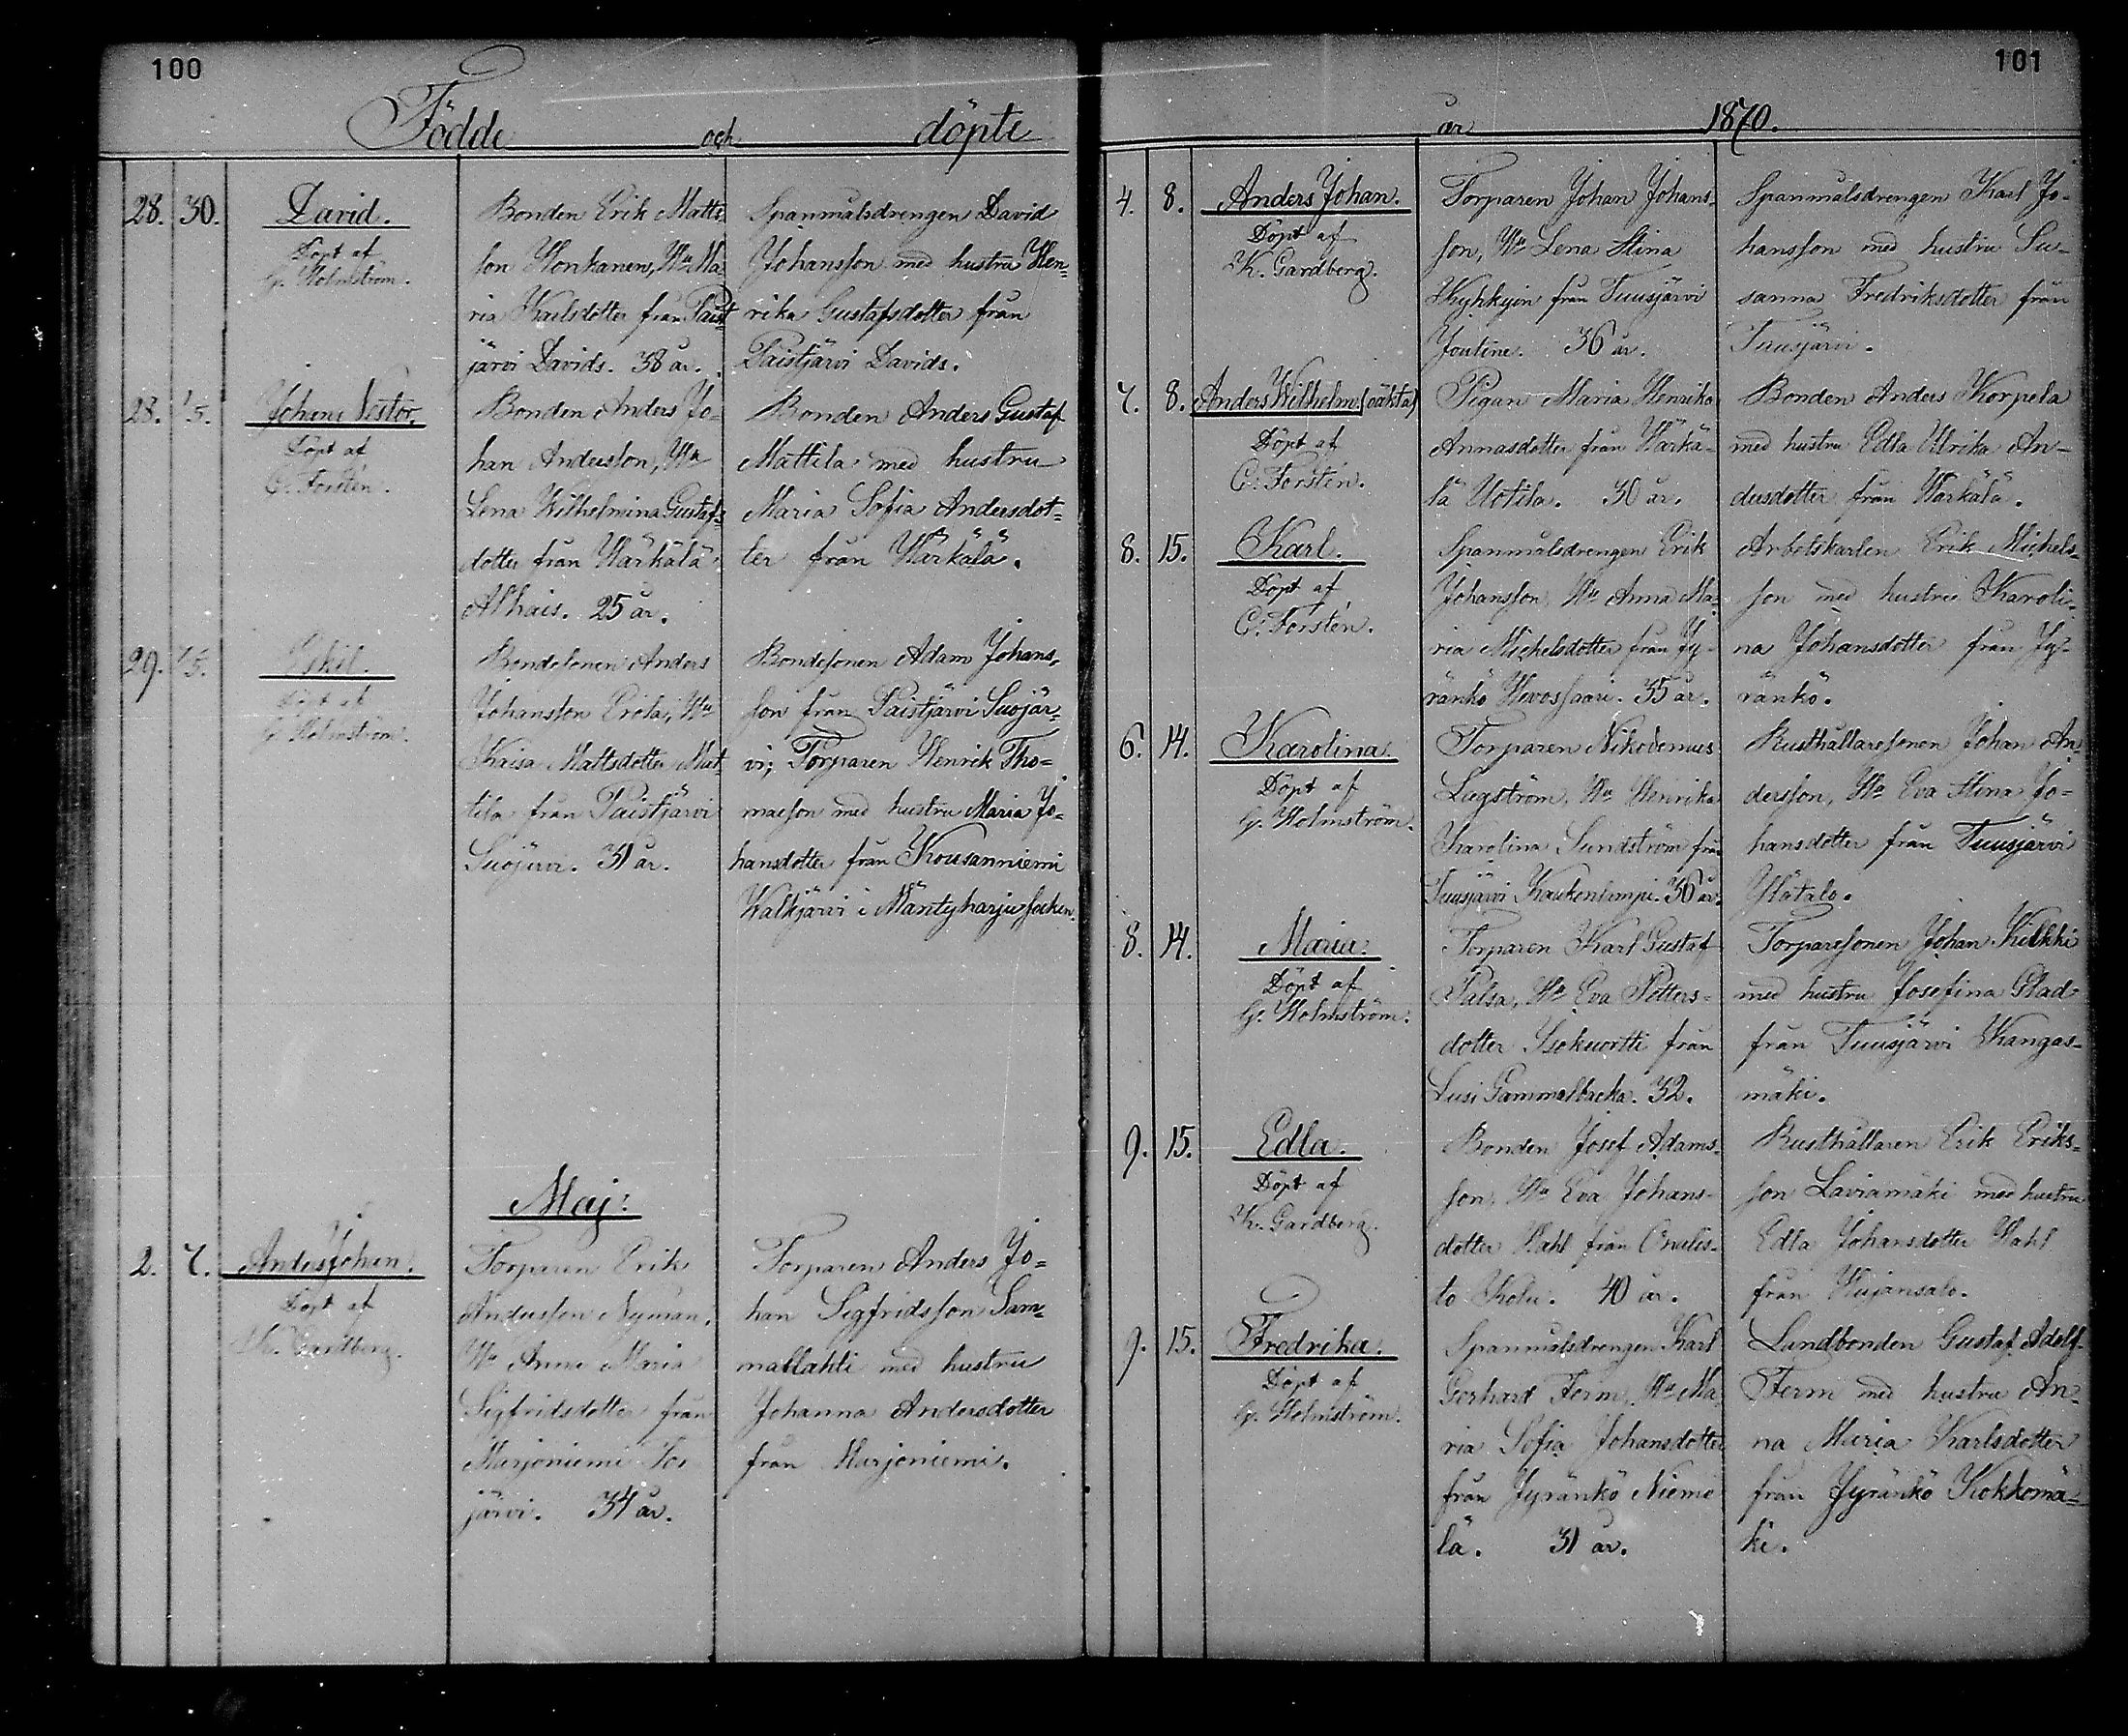 100
Födde och döpte
28. 30. David.
Döpt af
G. Holmström.
Bonden Erik Matts-
son Honkanen, Hu Ma
ria Karlsdotter från Paist
järvi Davids. 38 år.
Spanmålsdrengen David
Johansson med hustru Hen-
rika Gustafsdotter från
Paistjärvi Davids.
28. 1/5. Johan Nestor.
Döpt af
C. Forstén.
Bonden Anders Jo-
han Andersson, Hu
Lena Wilhelmina Gustafs-
dotter från Härkälä
Alhais. 25 år.
Bonden Anders Gustaf
Mattila med hustru
Maria Sofia Andersdot-
ter från Härkälä.
29. 1/5. Eskil.
Döpt af
G. Holmström.
Bondesonen Anders
Johansson Erola, Hu
Kaisa Mattsdotter Mat-
tila från Paistjärvi
Suojärvi. 31 år.
Bondesonen Adam Johans-
son från Paistjärvi Suojär-
vi; Torparen Henrik Tho-
masson med hustru Maria Jo-
hansdotter från Kousanniemi
Walkjärvi i Mäntyharju socken.
Maj:
2. 7. Anders Johan.
Döpt af
K. Gardberg.
Torparen Erik
Andersson Nyman,
Hu Anna Maria
Sigfridsdotter från
Marjoniemi
järvi. 34 år.
Torparen Anders Jo-
han Sigfridsson Sam-
mallahti med hustru
Johanna Andersdotter
från Marjoniemi.
101
år 1870.
4. 8. Anders Johan.
Döpt af
K. Gardberg.
Torparen Johan Johans-
son, Hu Lena Stina
Kyhkyin från Tuusjärvi
Joutine. 36 år.
Spanmålsdrengen Karl Jo-
hansson med hustru Su-
sanna Fredriksdotter från
Tuusjärvi.
7. 8. Anders Wilhelm. (oäkta)
Döpt af
C. Forstén.
Pigan Maria Henrika
Annasdotter från Härkä-
lä Uotila. 30 år.
Bonden Anders Korpela
med hustru Edla Ulrika An-
dersdotter från Härkälä.
8. 15. Karl.
Döpt af
C. Forstén.
Spanmålsdrengen Erik
Johansson, Hu Anna Ma-
ria Michelsdotter från Jy-
ränkö Hevossaari. 35 år.
Arbetskarlen Erik Michels-
son med hustru Karoli-
na Johansdotter från Jy-
ränkö.
6. 14. Karolina.
Döpt af
G. Holmström.
Torparen Nikodemus
Lagström, Hu Henrika
Karolina Sundström från
Tuusjärvi Kaukenlampi. 36 år.
Rusthållaresonen Johan An-
dersson, Hu Eva Stina Jo-
hansdotter från Tuusjärvi
Ylätalo.
8. 14. Maria.
Döpt af
G. Holmström.
Torparen Karl Gustaf
Palsa, Hu Eva Petters-
dotter Isokuortti från
Lusi Gammelbacka. 32.
Torparesonen Johan Kilkki
med hustru Josefina Glad
från Tuusjärvi Kangas-
mäki.
9. 15. Edla.
Döpt af
K. Gardberg.
Bonden Josef Adams-
son, Hu Eva Johans-
dotter Wahl från Onalis-
to Kolu. 40 år.
Rusthållaren Erik Eriks-
son Laviamäki med hustru
Edla Johansdotter Wahl
från Hujansalo.
9. 15. Fredrika.
Döpt af
G. Holmström.
Spanmålsdrengen Karl
Gerhard Ferm, Hu Ma
ria Sofia Johansdotter
från Jyränkö Niemo
lä. 31 år.
Landbonden Gustaf Adolf
Ferm med hustru An-
na Maria Karlsdotter
från Jyränkö Kokkomä-
ki.